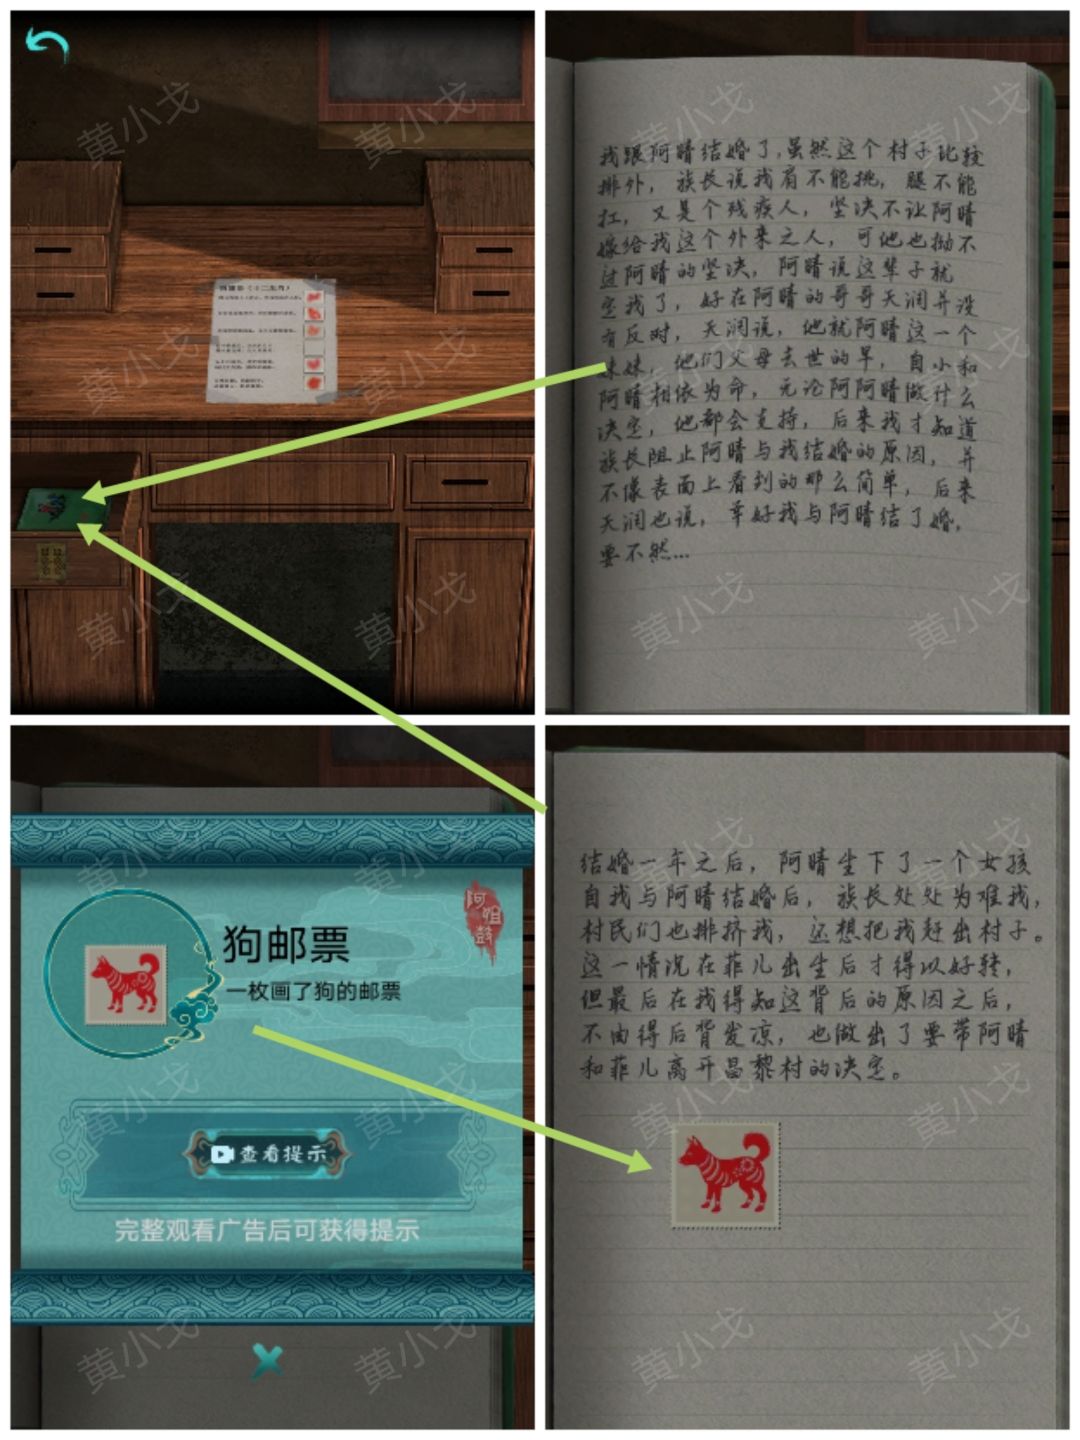 我跟阿晴结婚了，虽然这个村子比较
排外，族长说我肩不能挑，腿不能
扛，又是个残疾人，坚决不让阿晴
嫁给我这个外来之人，可他也拗不
过阿晴的坚决，阿晴说这辈子就
定我了，好在阿晴的哥哥天润并没
有反对，天润说，他就阿晴这一个
妹妹，他们父母去世的早，自小和
阿晴相依为命，无论阿阿晴做什么
决定，他都会支持，后来我才知道
族长阻止阿晴与我结婚的原因，并
不像表面上看到的那么简单，后来
天润也说，幸好我与阿晴结了婚，
要不然...
阿姐鼓
狗邮票
一枚画了狗的邮票
查看提示
完整观看广告后可获得提示
结婚一年之后，阿晴生下了一个女孩
自我与阿晴结婚后，族长处处为难我，
村民们也排挤我，还想把我赶出村子。
这一情况在菲儿出生后才得以好转，
但最后在我得知这背后的原因之后，
不由得后背发凉，也做出了要带阿晴
和菲儿离开昌黎村的决定。
黄小戈